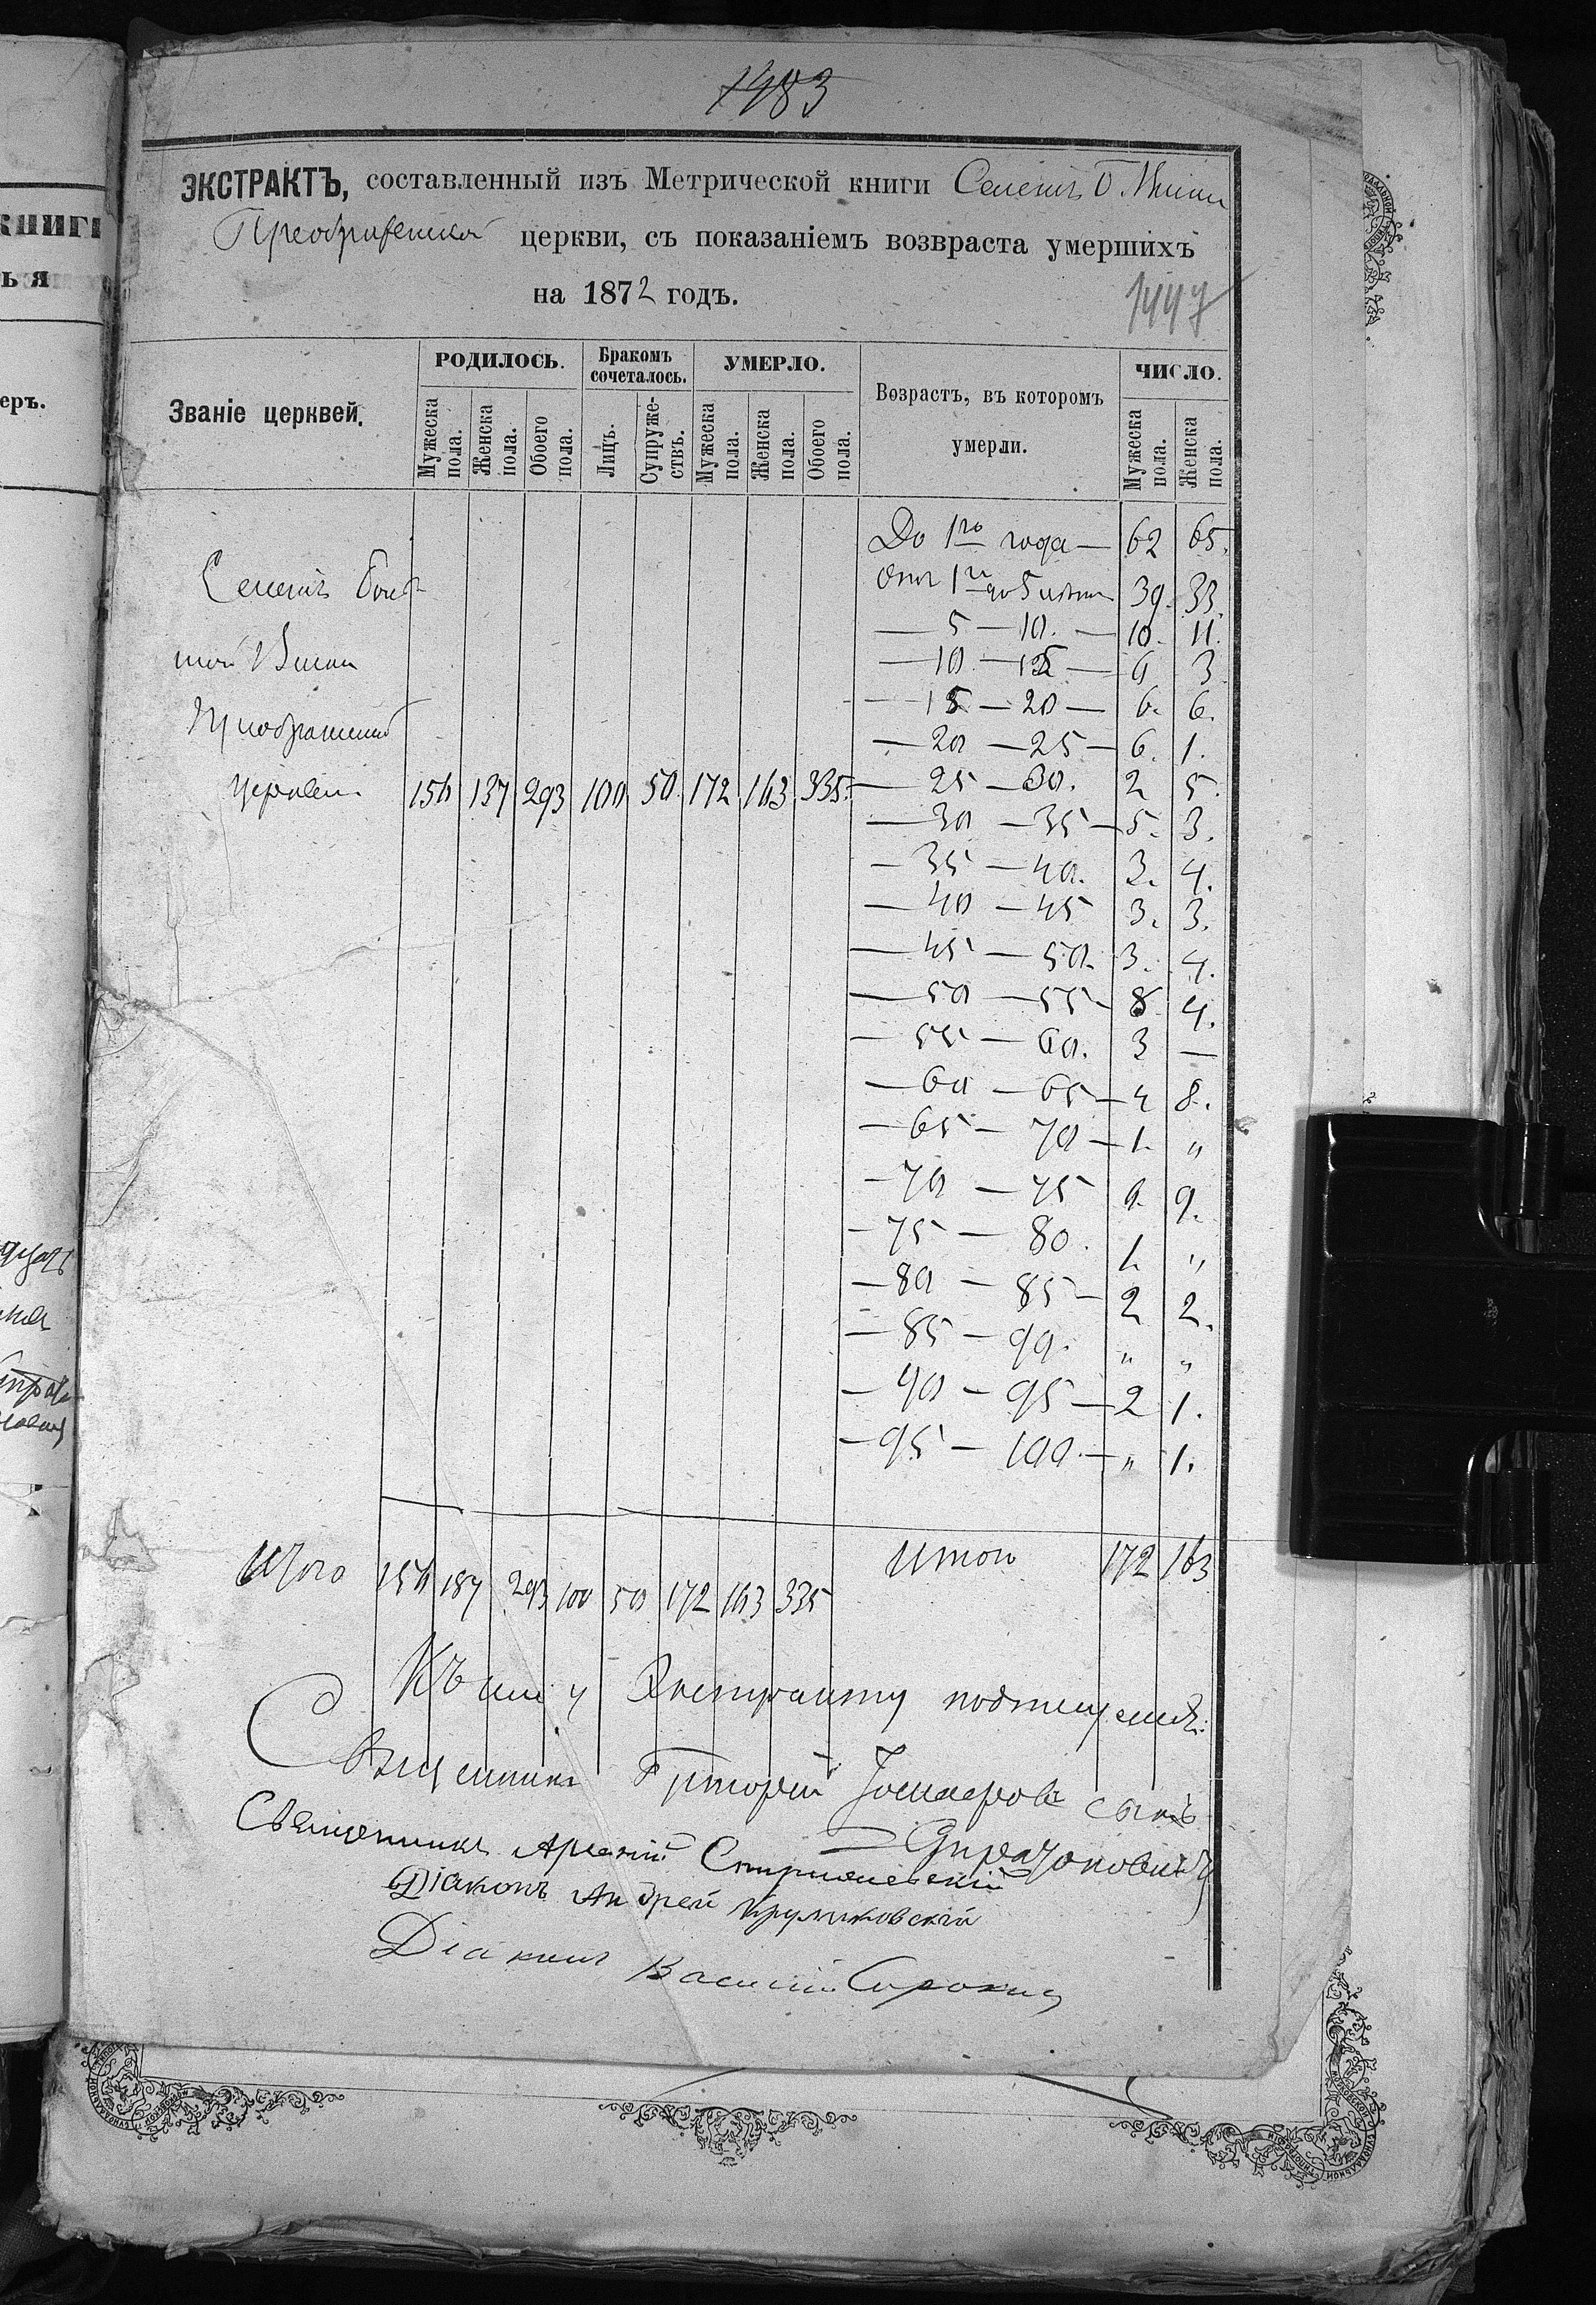 1483
ЭКСТРАКТЪ, составленный изъ Метрической книги Селенія Б.
церкви, съ показаніемъ возвраста умершихъ
на 1872 годъ.
1447
Званіе церквей.
РОДИЛОСЬ.
Мужеска пола.
Женска пола.
Обоего пола.
Бракомъ сочеталось.
Лицъ.
Супружествъ.
УМЕРЛО.
Мужеска пола.
Женска пола.
Обоего пола.
Возрастъ, въ которомъ
умерли.
ЧИСЛО.
Мужеска пола.
Женска пола.
До 1го года — 62 65.
Отъ 1го до 5 лѣтъ 39. 33.
— 5 — 10. — 10. 11.
— 10 — 15 — 6 3
— 15 — 20 — 6. 6.
— 20 — 25 — 6. 1.
— 25 — 30. 2 5.
— 30 — 35 — 5. 3.
— 35 — 40. 3. 4.
— 40 — 45 3. 3.
— 45 — 50. 3. 4.
— 50 — 55 — 8 4.
— 55 — 60. 3 —
— 60 — 65 — 4 8.
— 65 — 70 — 1. „
— 70 — 75 6. 9.
— 75 — 80. 1. „
— 80 — 85 — 2 2.
— 85 — 90. „ „
— 90 — 95 — 2 1.
— 95 — 100. — „ 1.
Селенія
церкви
156 137 293 100 50 172 163 335.
Итого 156 137 293 100 50 172 163 335
Итого 172 163
Къ сему Экстракту
Священникъ Григорій сынъ
Священникъ
Діаконъ Андрей Крутиковскій
Діаконъ Василій Сорокинъ
КНИГИ
ЬЯ
еръ.